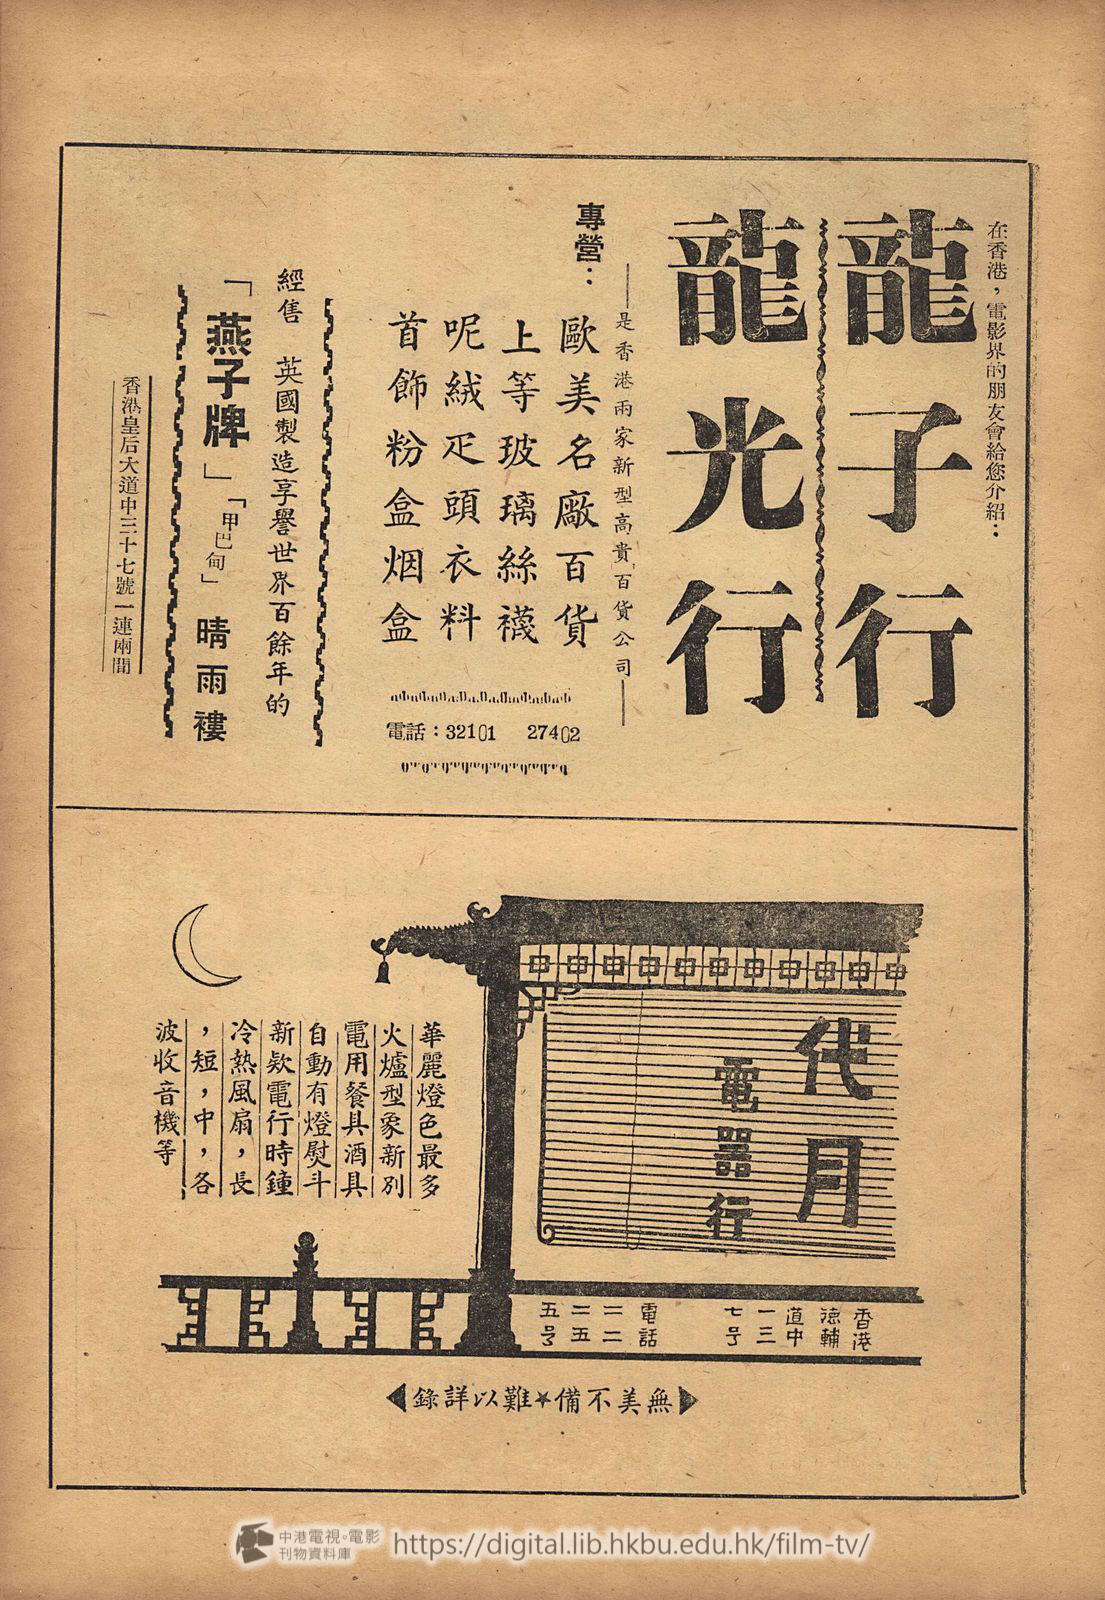 在香港，電影界的朋友會給您介紹：
龍子行
龍光行
—是香港兩家新型高貴百貨公司—
專營：
歐美名廠百貨
上等玻璃絲襪
呢絨疋頭衣料
首飾粉盒烟盒
電話：32101 27402
經售 英國製造享譽世界百餘年的
「燕子牌」「甲巴甸」晴雨褸
香港皇后大道中三十七號一連兩間
代月
電器行
華麗燈色最多
火爐型象新別
電用餐具酒具
自動有燈熨斗
新欵電行時鐘
冷熱風扇，長
，短，中，各
波收音機等
香港
德輔
道中
一三
七号
電話
二二
二五
五号
無美不備★難以詳錄
中港電視·電影
刊物資料庫
https://digital.lib.hkbu.edu.hk/film-tv/